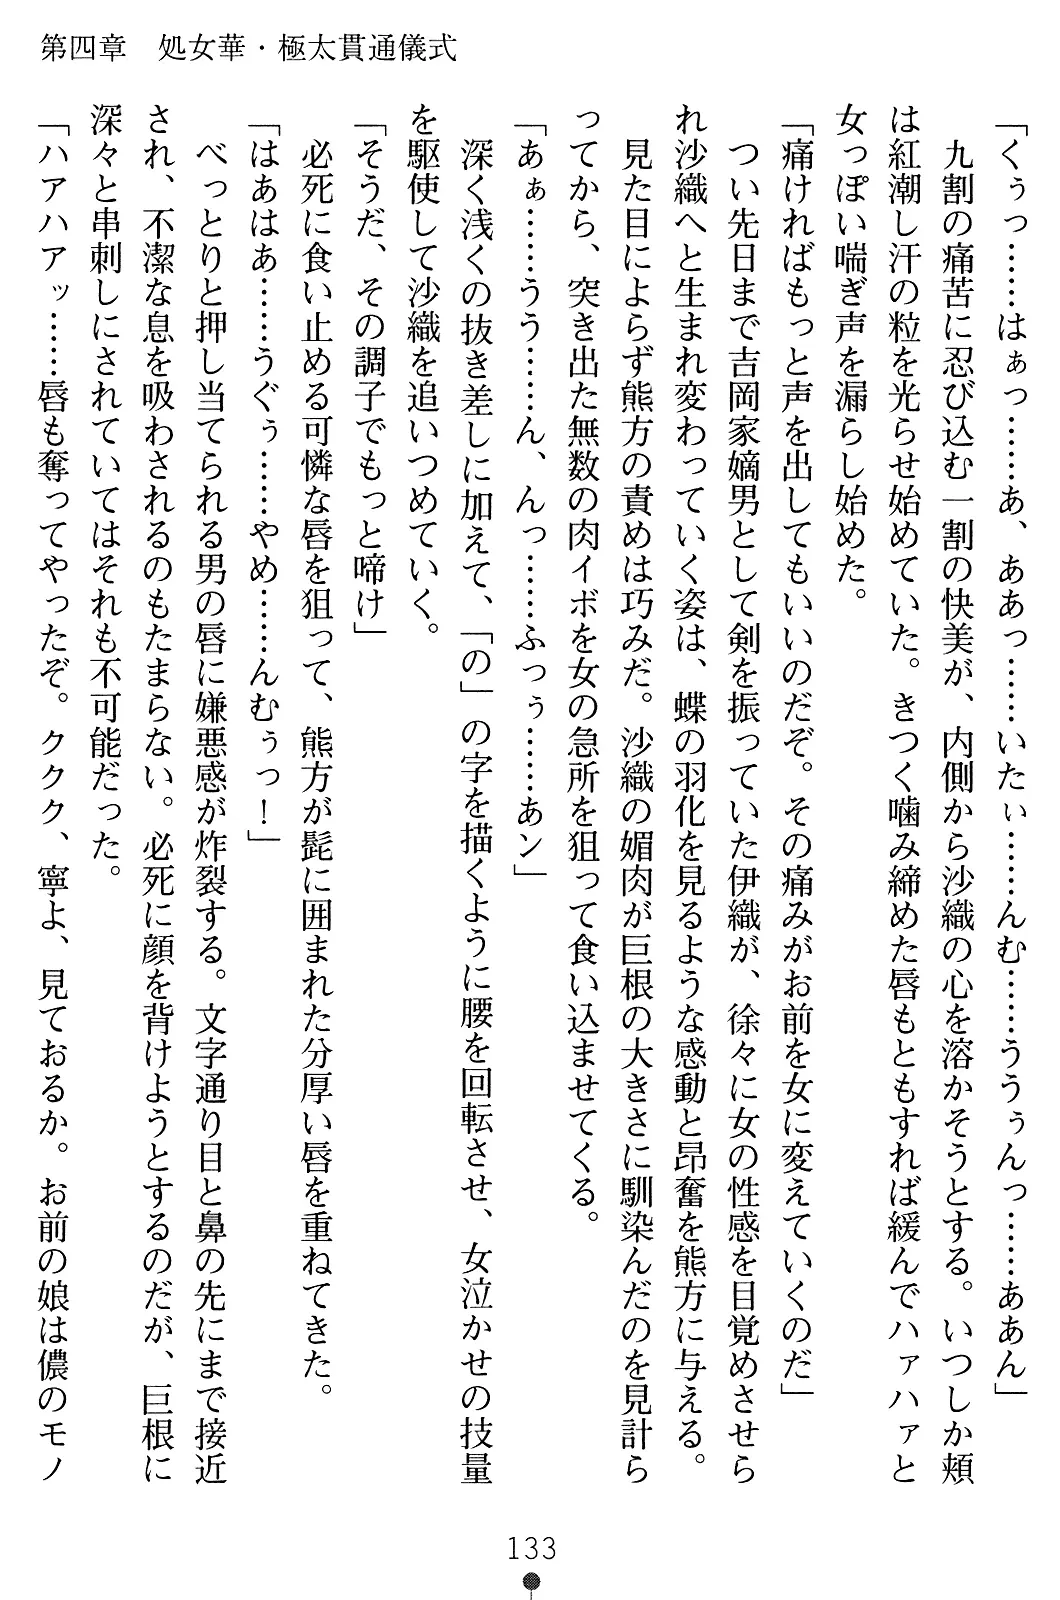 第四章　処女華・極太貫通儀式
「くぅっ……はぁっ……あ、ああっ……いたぃ……んむ……ううぅんっ……ああん」
　九割の痛苦に忍び込む一割の快美が、内側から沙織の心を溶かそうとする。いつしか頬
は紅潮し汗の粒を光らせ始めていた。きつく噛み締めた唇もともすれば緩んでハァハァと
女っぽい喘ぎ声を漏らし始めた。
「痛ければもっと声を出してもいいのだぞ。その痛みがお前を女に変えていくのだ」
　つい先日まで吉岡家嫡男として剣を振っていた伊織が、徐々に女の性感を目覚めさせら
れ沙織へと生まれ変わっていく姿は、蝶の羽化を見るような感動と昂奮を熊方に与える。
　見た目によらず熊方の責めは巧みだ。沙織の媚肉が巨根の大きさに馴染んだのを見計ら
ってから、突き出た無数の肉イボを女の急所を狙って食い込ませてくる。
「あぁ……うう……ん、んっ……ふっぅ……あン」
　深く浅くの抜き差しに加えて、「の」の字を描くように腰を回転させ、女泣かせの技量
を駆使して沙織を追いつめていく。
「そうだ、その調子でもっと啼け」
　必死に食い止める可憐な唇を狙って、熊方が髭に囲まれた分厚い唇を重ねてきた。
「はあはあ……うぐぅ……やめ……んむぅっ！」
　べっとりと押し当てられる男の唇に嫌悪感が炸裂する。文字通り目と鼻の先にまで接近
され、不潔な息を吸わされるのもたまらない。必死に顔を背けようとするのだが、巨根に
深々と串刺しにされていてはそれも不可能だった。
「ハアハアッ……唇も奪ってやったぞ。ククク、寧よ、見ておるか。お前の娘は儂のモノ
133